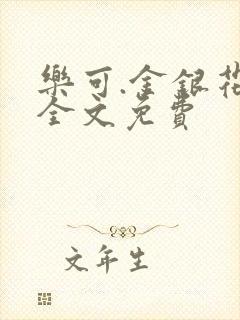 樂可.金銀花
全文免費
文年生